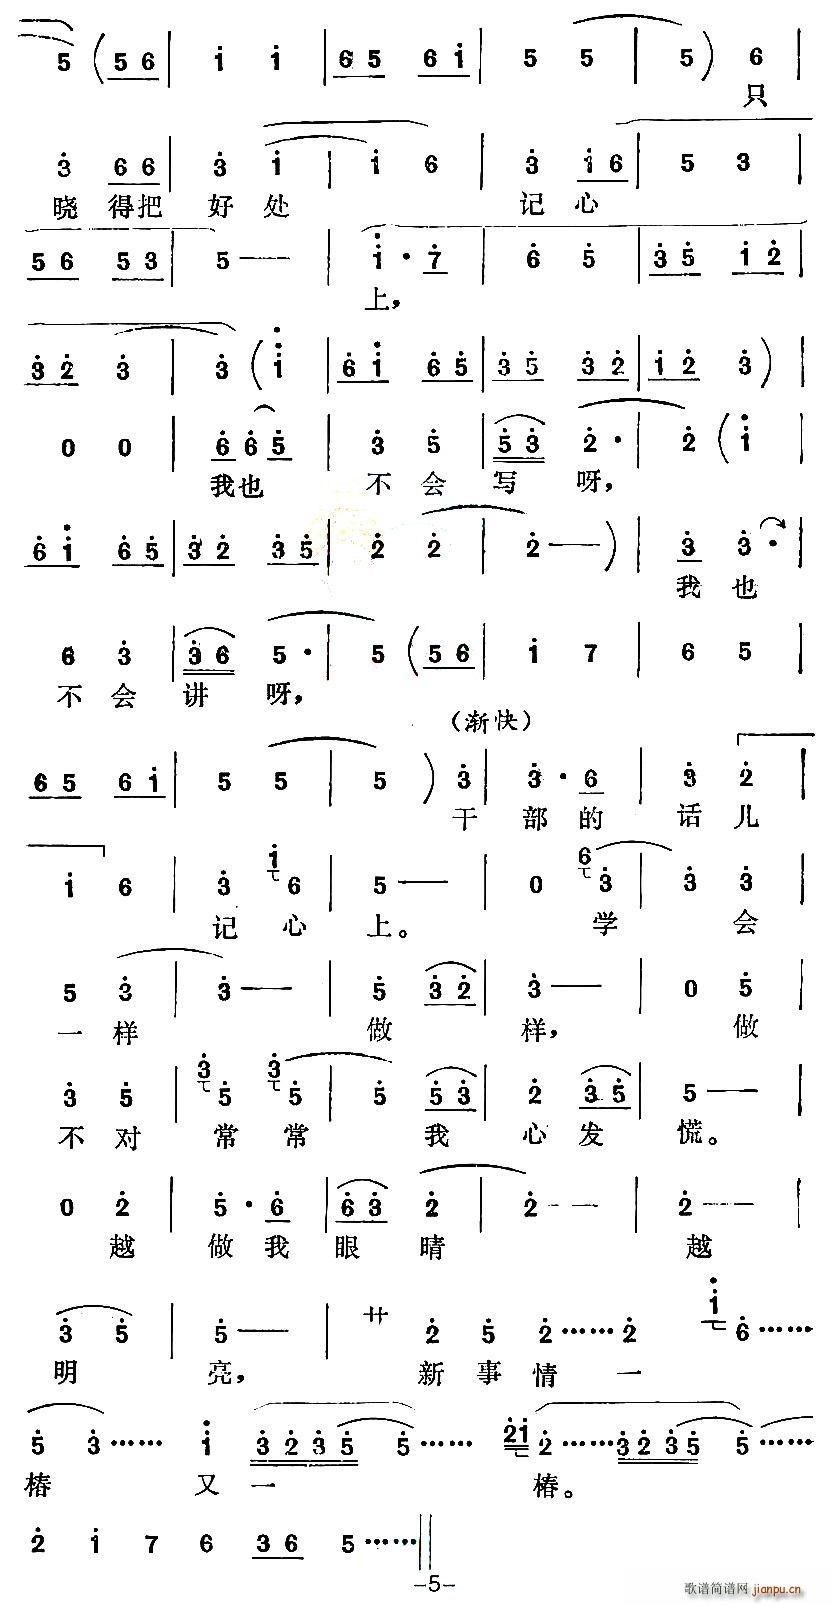 5 (5 6 | 1 1 | 6 5 6 1 | 5 5 | 5) 6 |
只
3 6 6 | 3 1 | 1 6 | 3 1 6 | 5 3
晓 得把 好处 记心
5 6 5 3 | 5 — | 1 · 7 | 6 5 | 3 5 1 2 |
上,
3 2 3 | 3 (1 | 6 1 6 5 | 3 5 3 2 | 1 2 3) |
0 0 | 6 6 5 | 3 5 | 5 3 2 · | 2 (1
我也 不会 写 呀,
6 1 6 5 | 3 2 3 5 | 2 2 | 2 — ) | 3 3 · |
我也
6 3 | 3 6 5 · | 5 (5 6 | 1 7 | 6 5 |
不会 讲 呀,
(渐快)
6 5 6 1 | 5 5 | 5 ) 3 | 3 · 6 | 3 2 |
干 部的 话儿
1 6 | 3 1 6 | 5 — | 0 6 3 | 3 3 |
记心 上。 学 会
5 3 | 3 — | 5 3 2 | 3 — | 0 5 |
一样 做 样, 做
3 5 | 3 5 3 5 | 5 5 3 | 2 3 5 | 5 — |
不对 常常 我 心发 慌。
0 2 | 5 · 6 | 6 3 2 | 2 - - | 2 — — |
越 做我 眼 睛 越
3 5 | 5 — | 艹 2 5 2 …… 2 1 6 ……
明 亮, 新事情一
5 3 …… 1 3 2 3 5 5 …… 2 1 2 …… 3 2 3 5 5 ……
椿 又一 椿。
2 1 7 6 3 6 5 …… ‖
–5–
歌谱简谱网 jianpu.cn